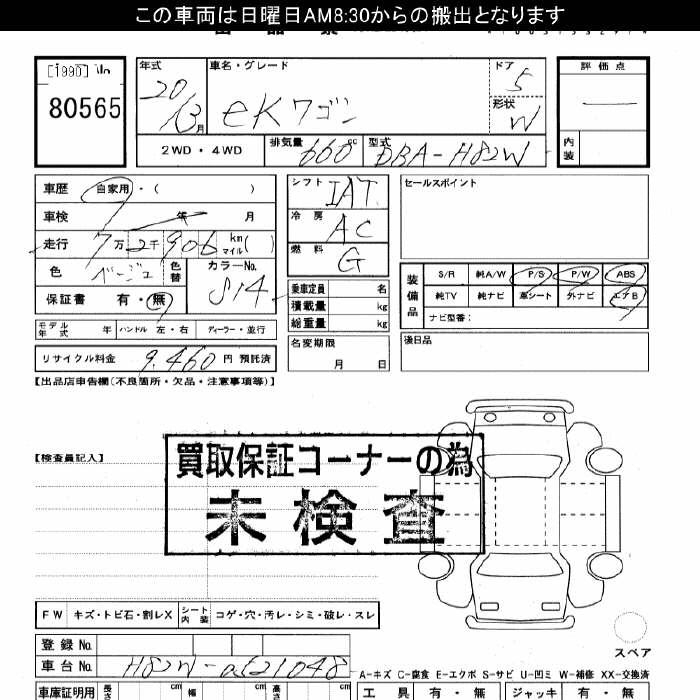 この車両は日曜日AM8:30からの搬出となります
[1990]
80565
年式 車名・グレード ドア 評価点
20/3月 eKワゴン 5
形状 W
2WD・4WD 排気量 660cc 型式 DBA-H82W 内装
車歴 自家用・( )
車検 年 月
走行 7万2千906 km マイル( )
色 ベージュ 色替 カラーNo. S14
保証書 有・無
シフト IAT
冷房 AC
燃料 G
乗車定員 名
積載量 kg
総重量 kg
名変期限
月 日
セールスポイント
装備品 S/R 純A/W P/S P/W ABS
純TV 純ナビ 革シート 外ナビ エアB
ナビ型番:
後日品
モデル年式 年 ハンドル 左・右 ディーラー・並行
リサイクル料金 9,460 円 預託済
【出品店申告欄(不良箇所・欠品・注意事項等)】
【検査員記入】
買取保証コーナーの為
未検査
FW キズ・トビ石・割レX シート内装 コゲ・穴・汚レ・シミ・破レ・スレ
スペア
登録No.
車台No. H82W-
A-キズ C-腐食 E-エクボ S-サビ U-凹ミ W-補修 XX-交換済
車庫証明用 長さ cm 幅 cm 高さ cm
工具 有・無 ジャッキ 有・無